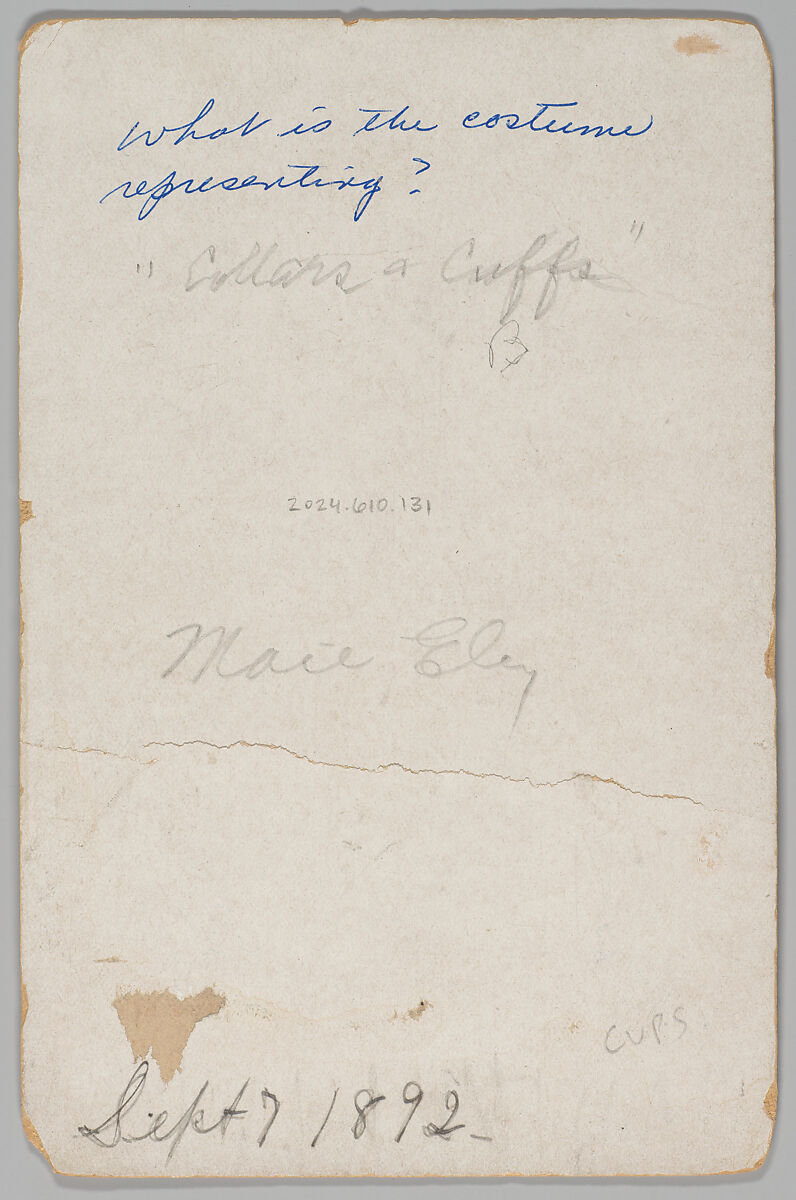 What is the costume
representing?
"Collars & Cuffs"
2024.610.131
Maie Eley
CUPS
Sept 7 1892-